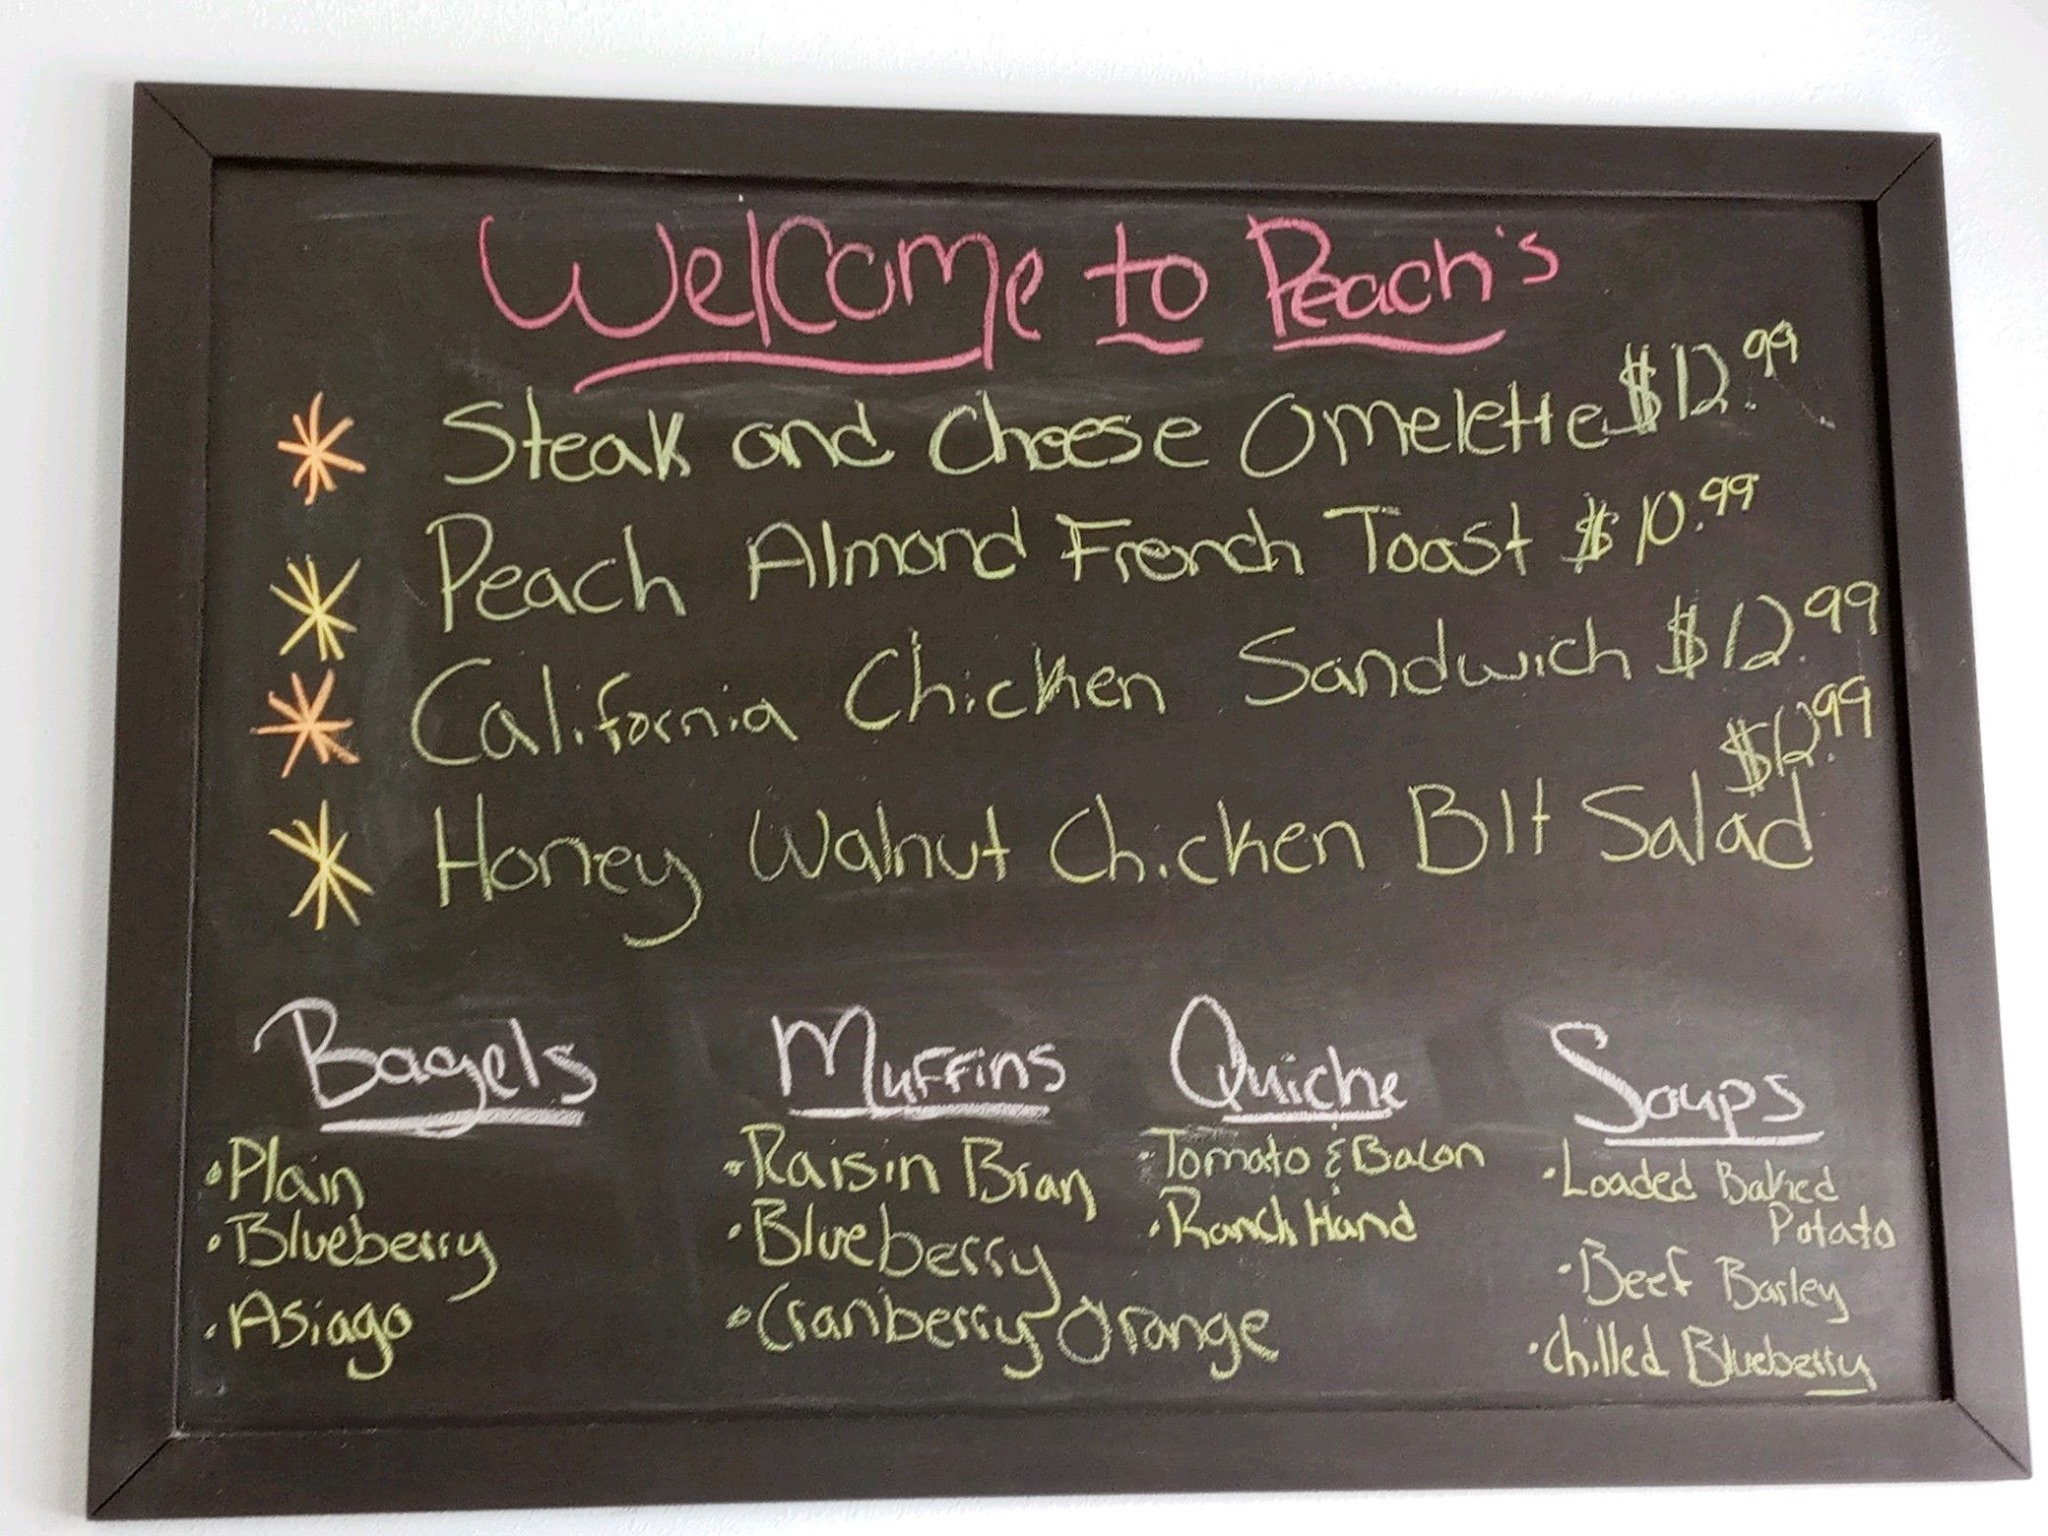 Welcome to Peach's
Steak and Cheese Omelette $12.99
Peach Almond French Toast $10.99
California Chicken Sandwich $12.99
$12.99
Honey Walnut Chicken Blt Salad
Bagels
• Plain
• Blueberry
• Asiago
Muffins
• Raisin Bran
• Blueberry
• Cranberry Orange
Quiche
• Tomato & Bacon
• Ranch Hand
Soups
• Loaded Baked
Potato
• Beef Barley
• Chilled Blueberry